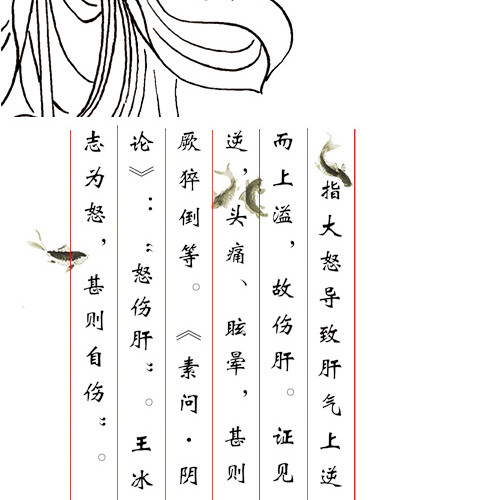 指大怒导致肝气上逆
而上溢，故伤肝。证见
逆，头痛、眩晕，甚则
厥猝倒等。《素问·阴
论》：“怒伤肝”。王冰
志为怒，甚则自伤”。